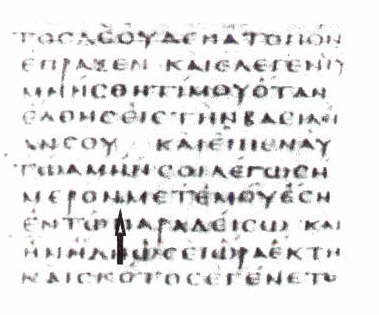 ΤΟϹΔΕΟΥΔΕΝΑΤΟΠΟΝ
ΕΠΡΑΞΕΝ ΚΑΙΕΛΕΓΕΝΙΥ
ΜΝΗϹΘΗΤΙΜΟΥΟΤΑΝ
ΕΛΘΗϹΕΙϹΤΗΝΒΑϹΙΛΕΙ
ΑΝϹΟΥ ΚΑΙΕΙΠΕΝΑΥ
ΤΩΑΜΗΝϹΟΙΛΕΓΩϹΗ
ΜΕΡΟΝΜΕΤΕΜΟΥΕϹΗ
ΕΝΤΩΠΑΡΑΔΕΙϹΩ ΚΑΙ
ΗΝΗΔΗΩϹΕΙΩΡΑΕΚΤΗ
ΚΑΙϹΚΟΤΟϹΕΓΕΝΕΤΟ